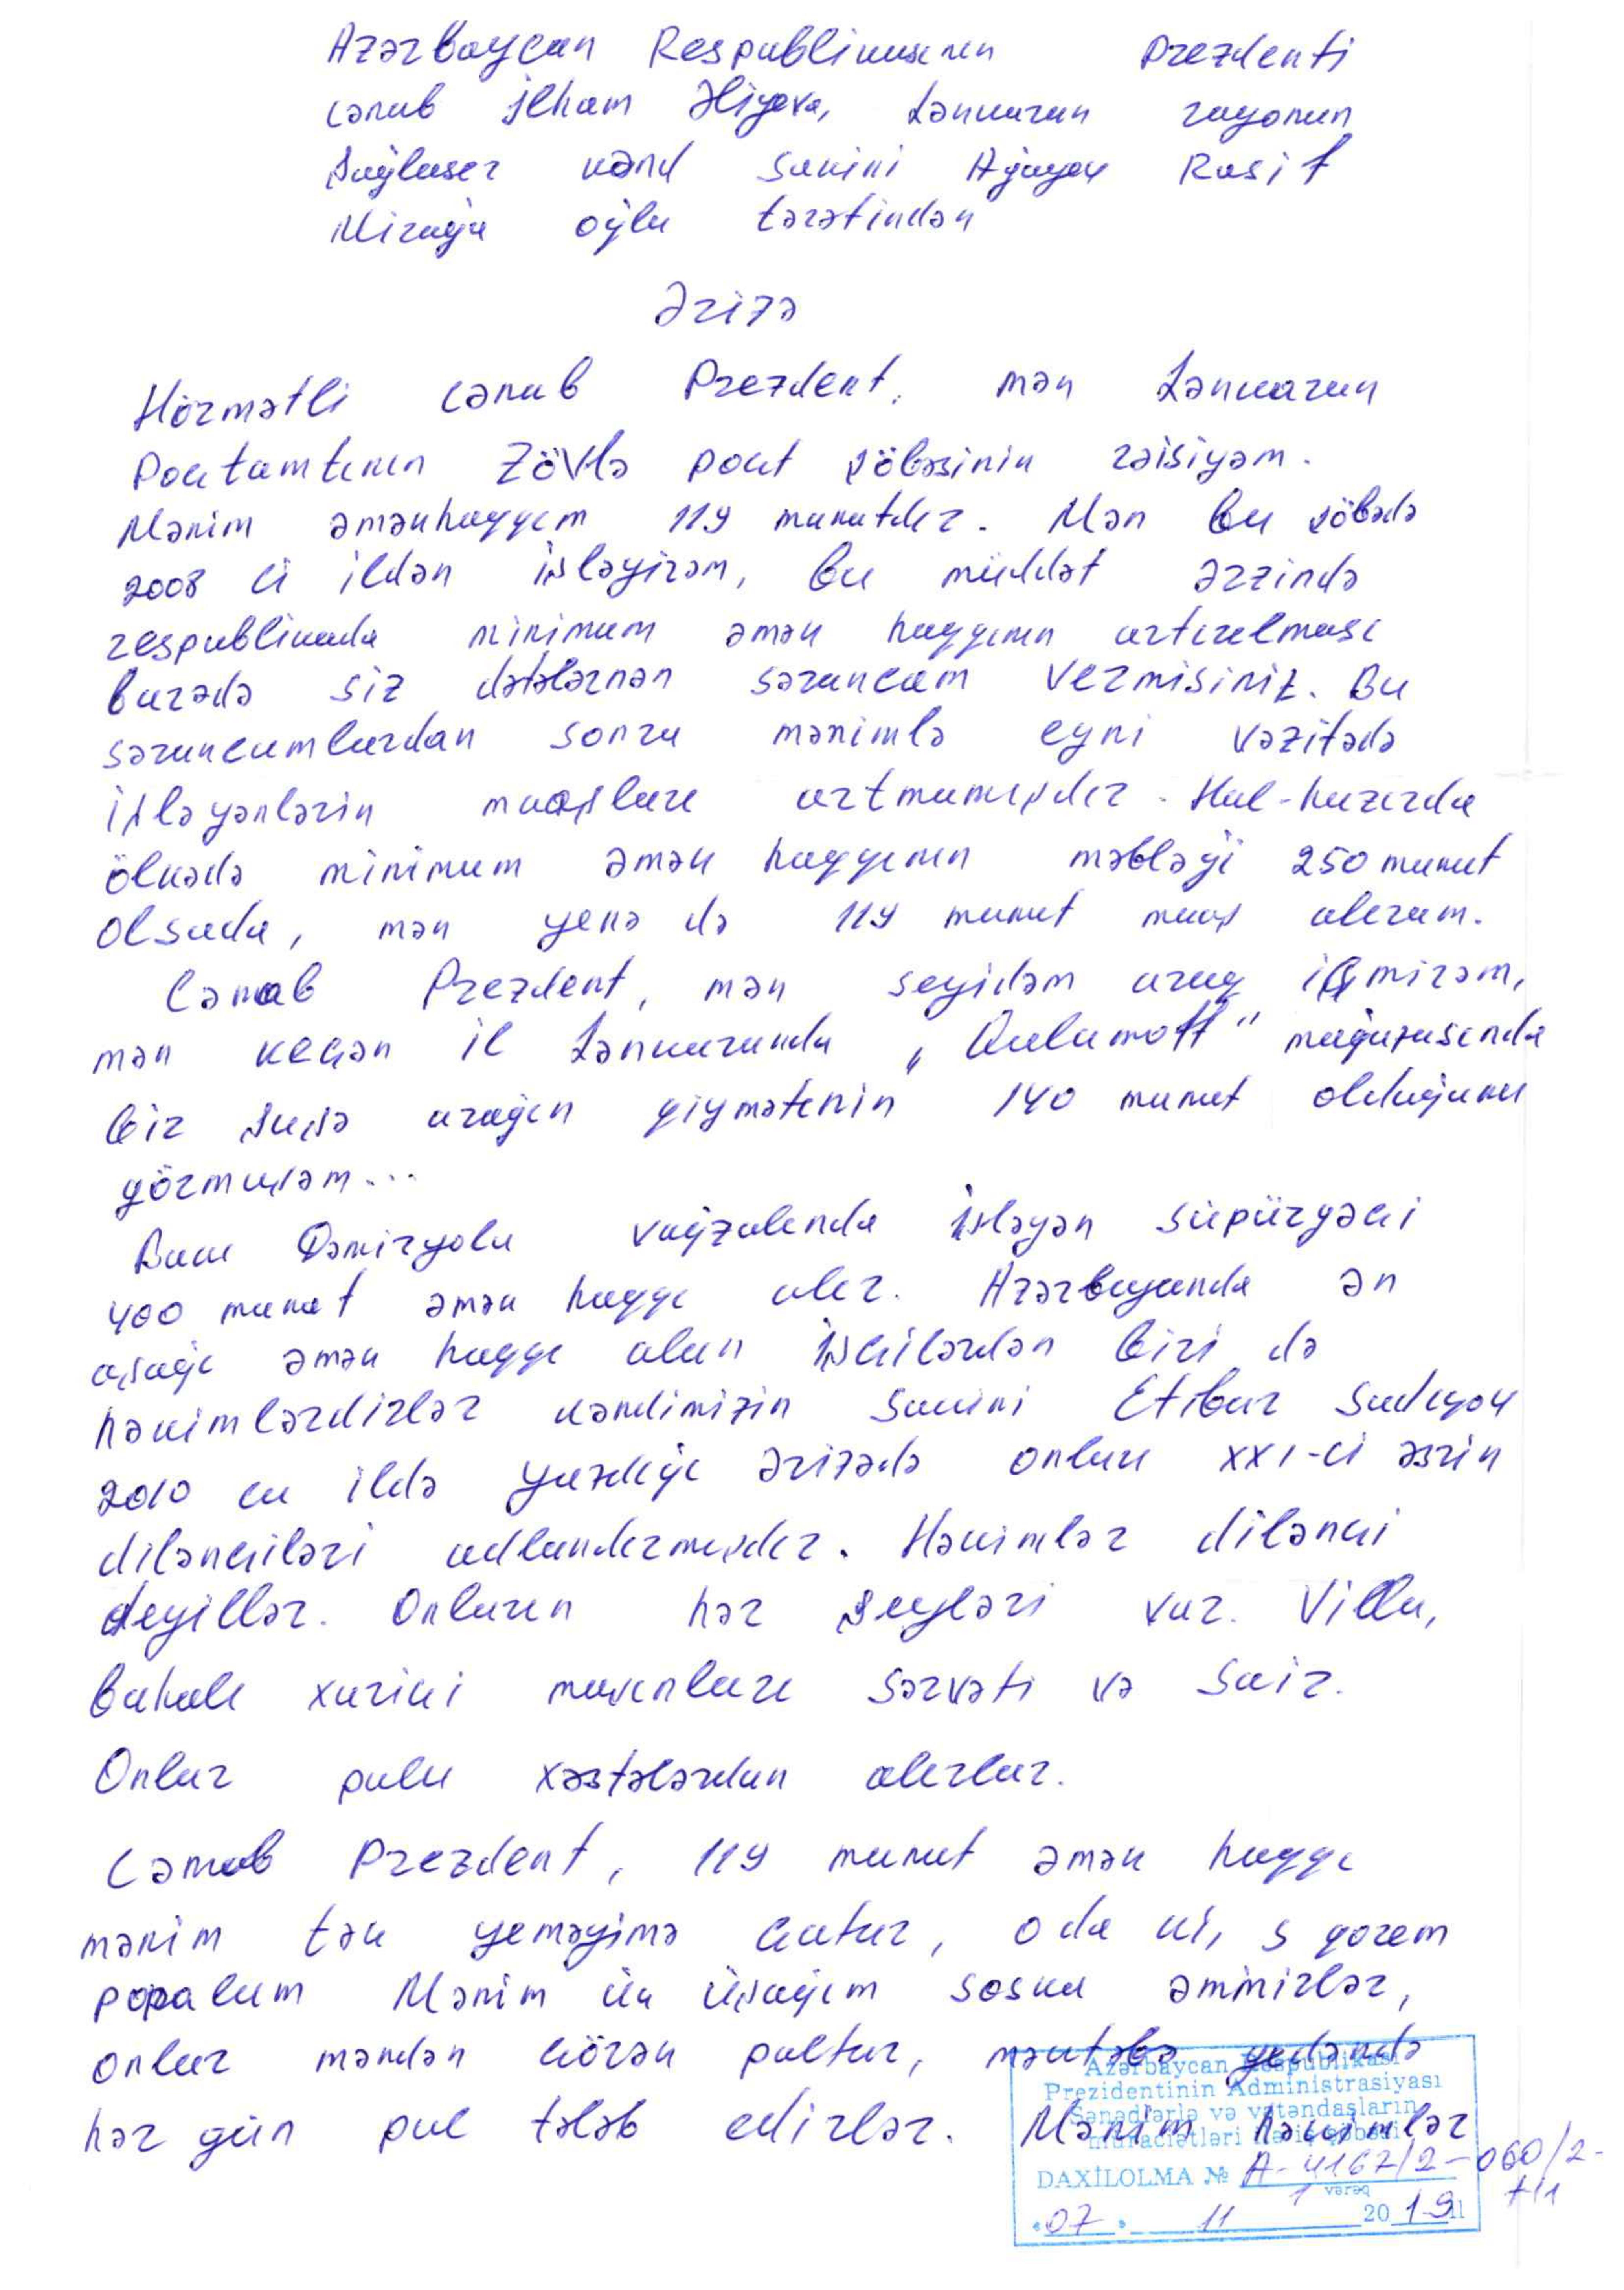 Azərbaycan Respublikasının Prezdenti
cənab İlham Əliyevə, Lənkəran rayonun
Şağlaser kənd sakini Ağayev Rasif
Mirağa oğlu tərəfindən
Ərizə
Hörmətli cənab Prezdent, mən Lənkəran
Poçtamtının Zövlə poçt şöbəsinin rəisiyəm.
Mənim əməkhaqqım 119 manatdır. Mən bu şöbədə
2008 ci ildən işləyirəm, bu müddət ərzində
respublikada minimum əmək haqqının artırılması
barədə siz dəfələrnən sərəncam vermisiniz. Bu
sərəncamlardan sonra mənimlə eyni vəzifədə
işləyənlərin maaşları artmamışdır. Hal-hazırda
ölkədə minimum əmək haqqının məbləği 250 manat
olsada, mən yenə də 119 manat maaş alıram.
Cənab Prezdent, mən seyidəm araq içmirəm,
mən keçən il Lənkəranda „Qalamoff" mağazasında
bir şuşə arağın qiymətinin 140 manat olduğunu
görmuşəm...
Bakı Dəmiryolu vağzalında işləyən süpürgəçi
400 manat əmək haqqı alır. Azərbayanda ən
aşağı əmək haqqı alan işçilərdən biri də
həkimlərdirlər kəndimizin sakini Etibar Sadıqov
2010 cu ildə yazdığı ərizədə onları XXI-ci əsrin
dilənçiləri adlandırmışdır. Həkimlər dilənçi
deyillər. Onların hər şeyləri var. Villa,
bahalı xarici maşınları sərvəti və sair.
Onlar pulu xəstələrdən alırlar.
Cənab Prezdent, 119 manat əmək haqqı
mənim tək yeməyimə çatır, o da ki, s qorem
popalam Mənim üç üşağım soska əmmirlər,
onlar məndən çörək paltar, məktəbə gedəndə
hər gün pul tələb edirlər. Mənim həkimlər
Azərbaycan Respublikası
Prezidentinin Administrasiyası
Sənədlərlə və vətəndaşların
müraciətləri ilə iş şöbəsi
DAXİLOLMA № A-4167/2-060/2-
1 vərəq
«07» 11 2019 il